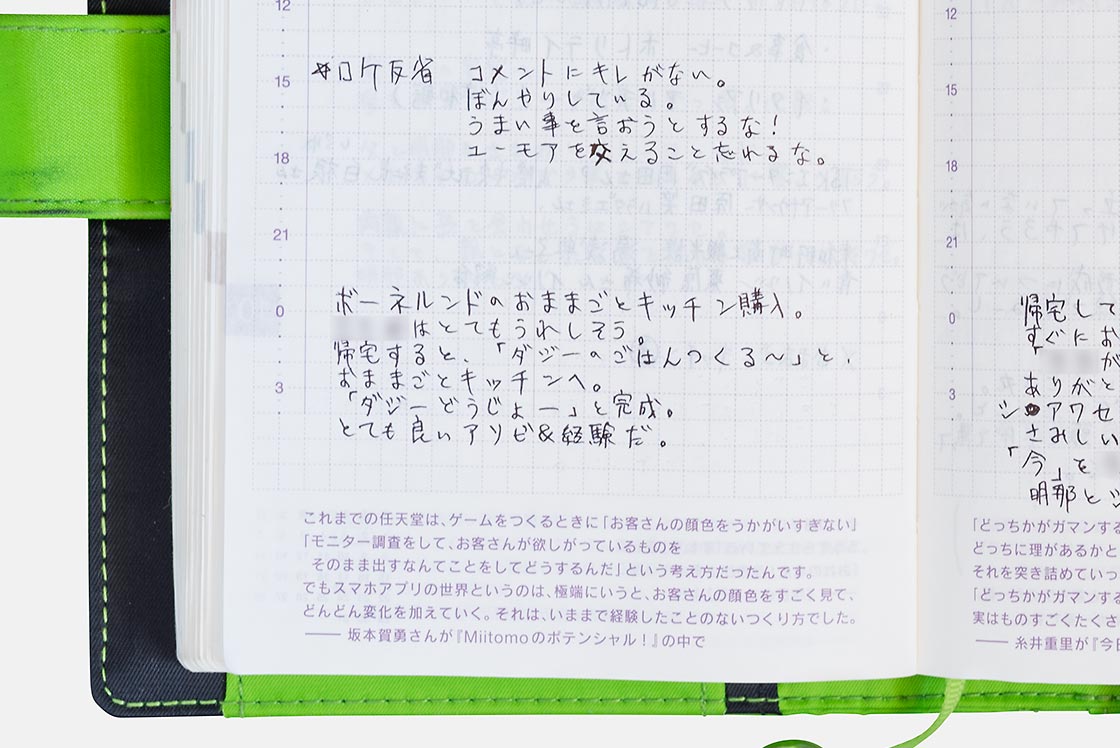 12
15
18
21
0
3
*ロケ反省 コメントにキレがない。
ぼんやりしている。
うまい事を言おうとするな!
ユーモアを交えること忘れるな。
ボーネルンドのおままごとキッチン購入。
はとてもうれしそう。
帰宅すると、「ダジーのごはんつくる〜」と、
おままごとキッチンへ。
「ダジーどうじょー」と完成。
とても良いアソビ&経験だ。
これまでの任天堂は、ゲームをつくるときに「お客さんの顔色をうかがいすぎない」
「モニター調査をして、お客さんが欲しがっているものを
そのまま出すなんてことをしてどうするんだ」という考え方だったんです。
でもスマホアプリの世界というのは、極端にいうと、お客さんの顔色をすごく見て、
どんどん変化を加えていく。それは、いままで経験したことのないつくり方でした。
—— 坂本賀勇さんが『Miitomoのポテンシャル!』の中で
12
15
18
21
0
3
帰宅して
すぐにお
「 が
ありがと
シアワセ
さみしい
「今」を
明那と
「どっちかがガマンする
どっちに理があるかと
それを突き詰めていっ
「どっちかがガマンする
実はものすごくたくさ
—— 糸井重里が『今日